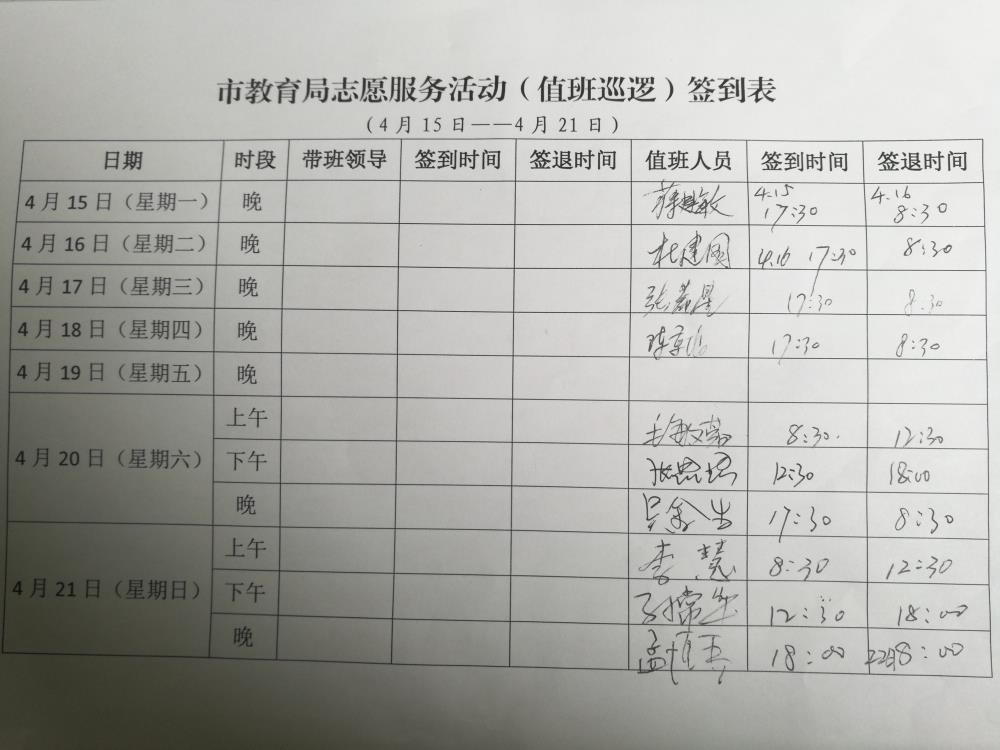 市教育局志愿服务活动（值班巡逻）签到表
（4月15日——4月21日）
日期 时段 带班领导 签到时间 签退时间 值班人员 签到时间 签退时间
4月15日（星期一） 晚 4.15 17:30 4.16 8:30
4月16日（星期二） 晚 杜建国 4.16 17:30 8:30
4月17日（星期三） 晚 17:30 8:30
4月18日（星期四） 晚 17:30 8:30
4月19日（星期五） 晚
4月20日（星期六） 上午 8:30 12:30
下午 12:30 18:00
晚 17:30 8:30
4月21日（星期日） 上午 李慧 8:30 12:30
下午 12:30 18:00
晚 18:00 8:00